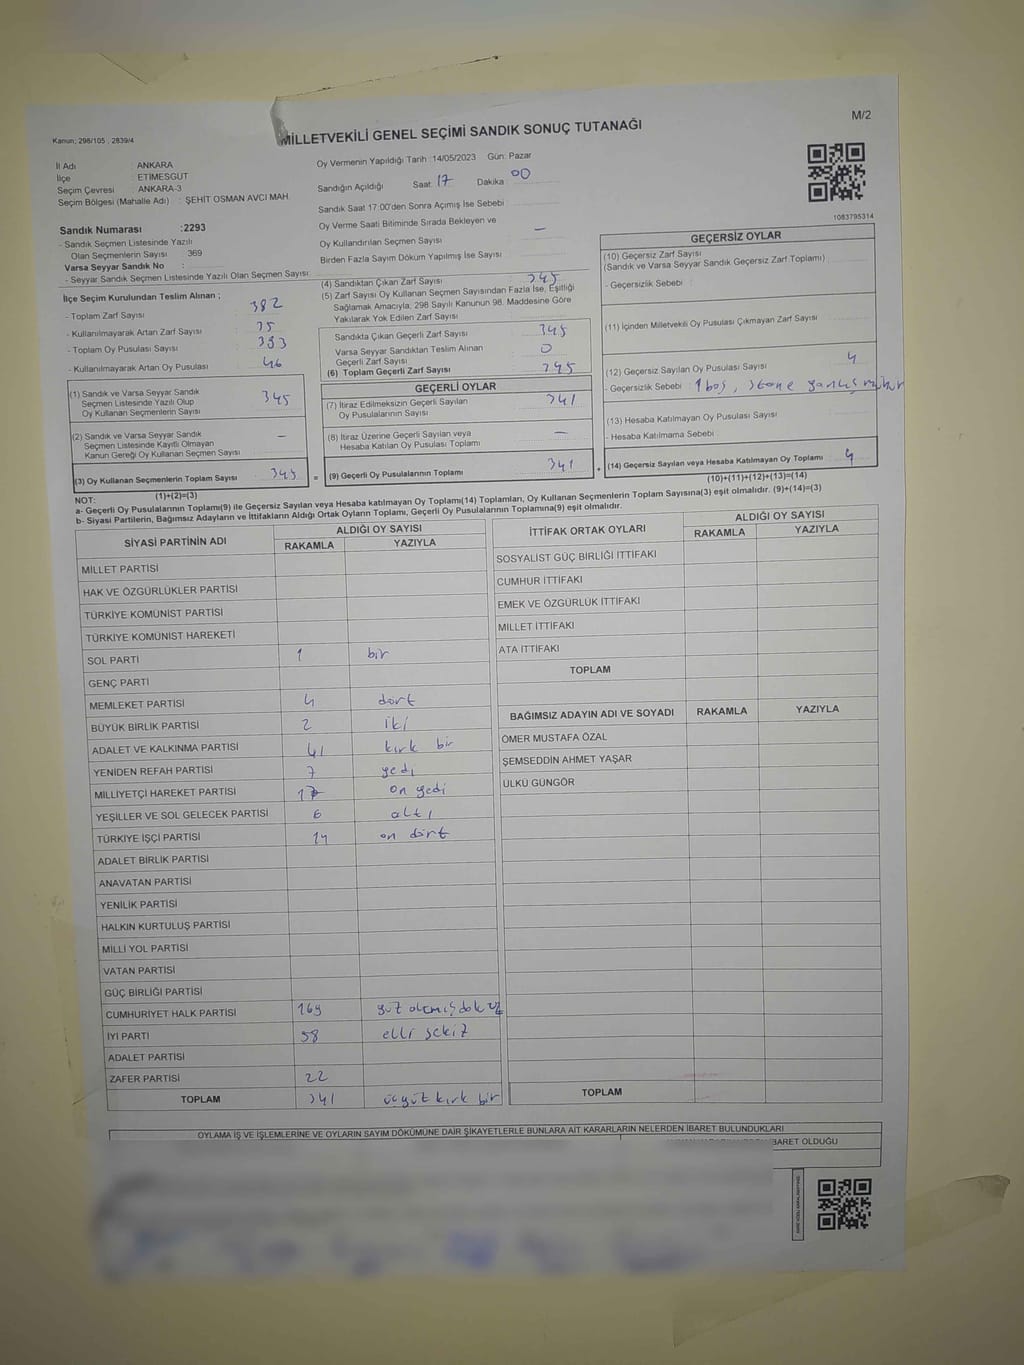 Kanun: 298/105 , 2839/4
MİLLETVEKİLİ GENEL SEÇİMİ SANDIK SONUÇ TUTANAĞI
M/2
İl Adı : ANKARA
İlçe : ETİMESGUT
Seçim Çevresi : ANKARA-3
Seçim Bölgesi (Mahalle Adı) : ŞEHİT OSMAN AVCI MAH.
Oy Vermenin Yapıldığı Tarih :14/05/2023 Gün: Pazar
Sandığın Açıldığı Saat: 17 Dakika : 00
Sandık Saat 17:00'den Sonra Açımış İse Sebebi :
Oy Verme Saati Bitiminde Sırada Bekleyen ve
Oy Kullandırılan Seçmen Sayısı : —
Birden Fazla Sayım Döküm Yapılmış İse Sayısı :
1083795314
Sandık Numarası :2293
- Sandık Seçmen Listesinde Yazılı
Olan Seçmenlerin Sayısı : 369
Varsa Seyyar Sandık No :
- Seyyar Sandık Seçmen Listesinde Yazılı Olan Seçmen Sayısı :
İlçe Seçim Kurulundan Teslim Alınan ;
- Toplam Zarf Sayısı : 382
- Kullanılmayarak Artan Zarf Sayısı :
- Toplam Oy Pusulası Sayısı :
- Kullanılmayarak Artan Oy Pusulası : 46
(1) Sandık ve Varsa Seyyar Sandık
Seçmen Listesinde Yazılı Olup
Oy Kullanan Seçmenlerin Sayısı : 345
(2) Sandık ve Varsa Seyyar Sandık
Seçmen Listesinde Kayıtlı Olmayan
Kanun Gereği Oy Kullanan Seçmen Sayısı : —
(3) Oy Kullanan Seçmenlerin Toplam Sayısı : 345
(1)+(2)=(3)
(4) Sandıktan Çıkan Zarf Sayısı : 345
(5) Zarf Sayısı Oy Kullanan Seçmen Sayısından Fazla İse, Eşitliği
Sağlamak Amacıyla; 298 Sayılı Kanunun 98. Maddesine Göre
Yakılarak Yok Edilen Zarf Sayısı :
Sandıkta Çıkan Geçerli Zarf Sayısı : 345
Varsa Seyyar Sandıktan Teslim Alınan
Geçerli Zarf Sayısı : 0
(6) Toplam Geçerli Zarf Sayısı : 345
GEÇERLİ OYLAR
(7) İtiraz Edilmeksizin Geçerli Sayılan
Oy Pusulalarının Sayısı : 341
(8) İtiraz Üzerine Geçerli Sayılan veya
Hesaba Katılan Oy Pusulası Toplamı : —
= (9) Geçerli Oy Pusulalarının Toplamı : 341
GEÇERSİZ OYLAR
(10) Geçersiz Zarf Sayısı
(Sandık ve Varsa Seyyar Sandık Geçersiz Zarf Toplamı) :
- Geçersizlik Sebebi :
(11) İçinden Milletvekili Oy Pusulası Çıkmayan Zarf Sayısı :
(12) Geçersiz Sayılan Oy Pusulası Sayısı : 4
- Geçersizlik Sebebi : 1 boş,
(13) Hesaba Katılmayan Oy Pusulası Sayısı :
- Hesaba Katılmama Sebebi :
+ (14) Geçersiz Sayılan veya Hesaba Katılmayan Oy Toplamı : 4
(10)+(11)+(12)+(13)=(14)
NOT:
a- Geçerli Oy Pusulalarının Toplamı(9) ile Geçersiz Sayılan veya Hesaba katılmayan Oy Toplamı(14) Toplamları, Oy Kullanan Seçmenlerin Toplam Sayısına(3) eşit olmalıdır. (9)+(14)=(3)
b- Siyasi Partilerin, Bağımsız Adayların ve İttifakların Aldığı Ortak Oyların Toplamı, Geçerli Oy Pusulalarının Toplamına(9) eşit olmalıdır.
SİYASİ PARTİNİN ADI ALDIĞI OY SAYISI
RAKAMLA YAZIYLA
MİLLET PARTİSİ
HAK VE ÖZGÜRLÜKLER PARTİSİ
TÜRKİYE KOMÜNİST PARTİSİ
TÜRKİYE KOMÜNİST HAREKETİ
SOL PARTİ 1 bir
GENÇ PARTİ
MEMLEKET PARTİSİ 4 dört
BÜYÜK BİRLİK PARTİSİ 2 iki
ADALET VE KALKINMA PARTİSİ 41 kırk bir
YENİDEN REFAH PARTİSİ 7 yedi
MİLLİYETÇİ HAREKET PARTİSİ 17 on yedi
YEŞİLLER VE SOL GELECEK PARTİSİ 6 altı
TÜRKİYE İŞÇİ PARTİSİ 14 on dört
ADALET BİRLİK PARTİSİ
ANAVATAN PARTİSİ
YENİLİK PARTİSİ
HALKIN KURTULUŞ PARTİSİ
MİLLİ YOL PARTİSİ
VATAN PARTİSİ
GÜÇ BİRLİĞİ PARTİSİ
CUMHURİYET HALK PARTİSİ 169 yüz altmış dokuz
İYİ PARTİ 58 elli sekiz
ADALET PARTİSİ
ZAFER PARTİSİ 22
TOPLAM 341 üçyüz kırk bir
İTTİFAK ORTAK OYLARI ALDIĞI OY SAYISI
RAKAMLA YAZIYLA
SOSYALİST GÜÇ BİRLİĞİ İTTİFAKI
CUMHUR İTTİFAKI
EMEK VE ÖZGÜRLÜK İTTİFAKI
MİLLET İTTİFAKI
ATA İTTİFAKI
TOPLAM
BAĞIMSIZ ADAYIN ADI VE SOYADI RAKAMLA YAZIYLA
ÖMER MUSTAFA ÖZAL
ŞEMSEDDİN AHMET YAŞAR
ÜLKÜ GÜNGÖR
TOPLAM
OYLAMA İŞ VE İŞLEMLERİNE VE OYLARIN SAYIM DÖKÜMÜNE DAİR ŞİKAYETLERLE BUNLARA AİT KARARLARIN NELERDEN İBARET BULUNDUKLARI
BARET OLDUĞU